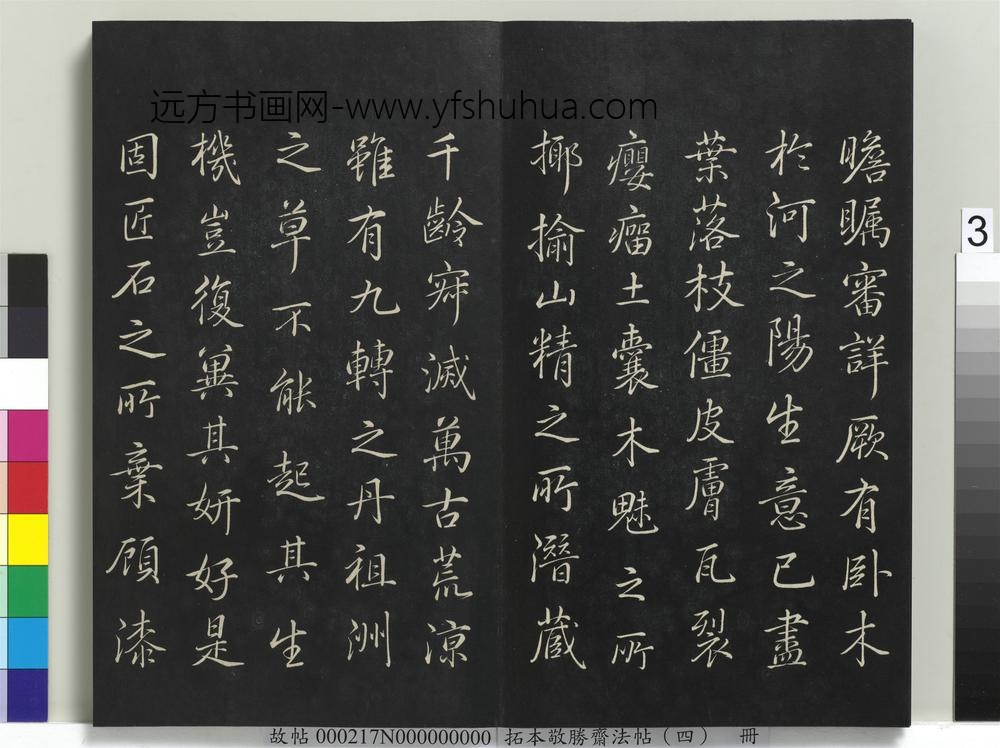 远方书画网-www.yfshuhua.com
瞻矚審詳厥有卧木
於河之陽生意已盡
葉落枝僵皮膚瓦裂
癭瘤土囊木魅之所
揶揄山精之所潛藏
千齡寂滅萬古荒凉
雖有九轉之丹祖洲
之草不能起其生
機豈復冀其妍好是
固匠石之所棄顧漆
3
故帖 000217N000000000 拓本敬勝齋法帖（四） 冊